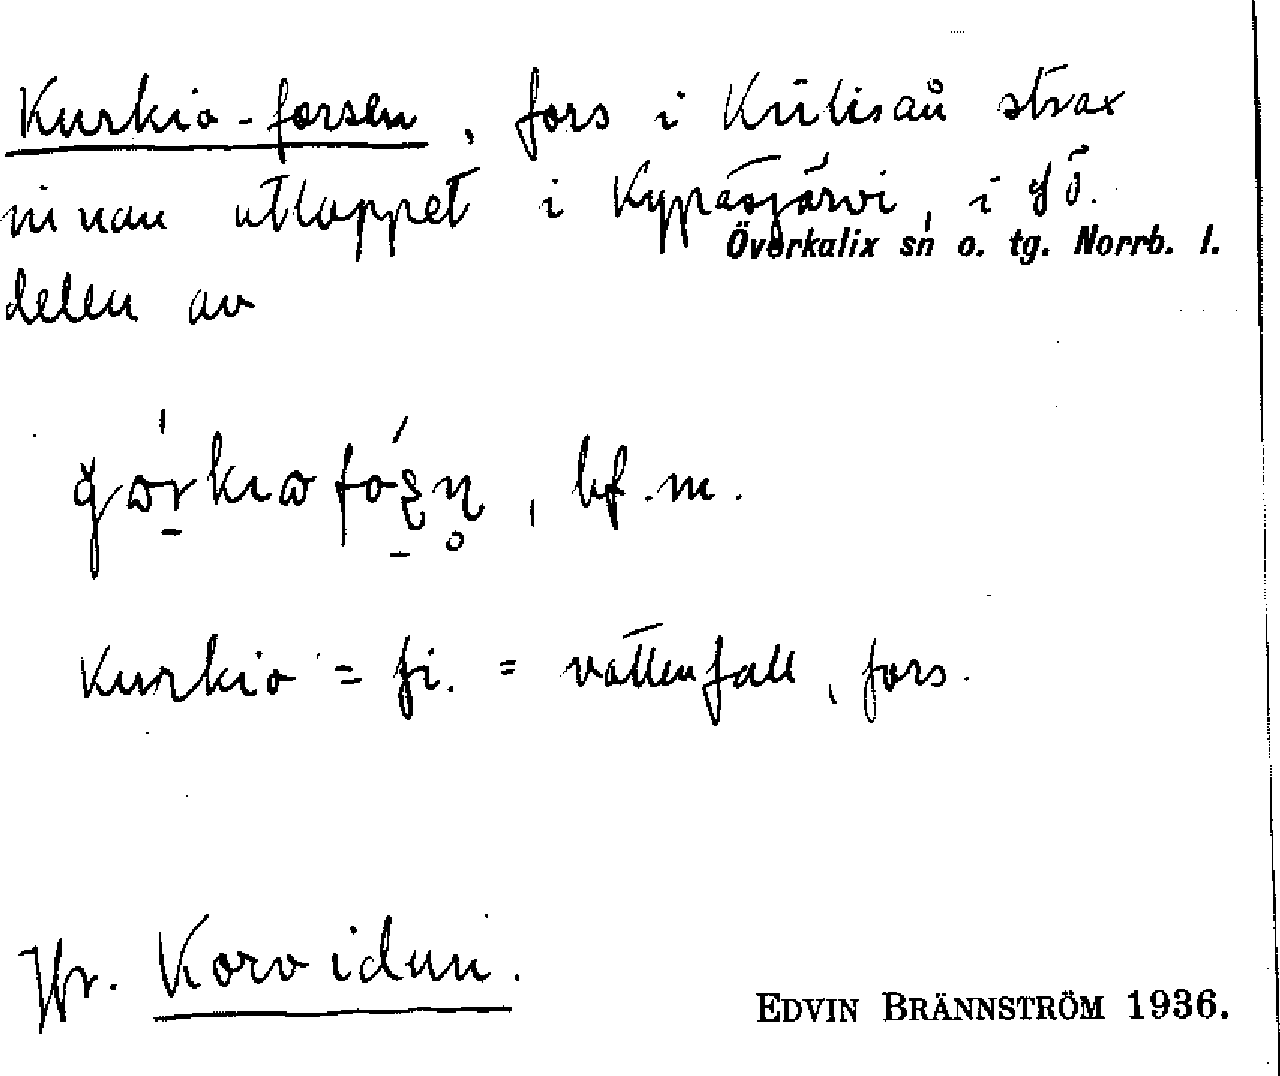 Kurkio-forsen, fors i Külisån strax
innan utloppet i Kypäsjärvi, i SÖ.
Överkalix sn o. tg. Norrb. l.
delen av
bf. m.
Kurkio = fi. = vattenfall, fors.
Jfr. Korvidun.
EDVIN BRÄNNSTRÖM 1936.